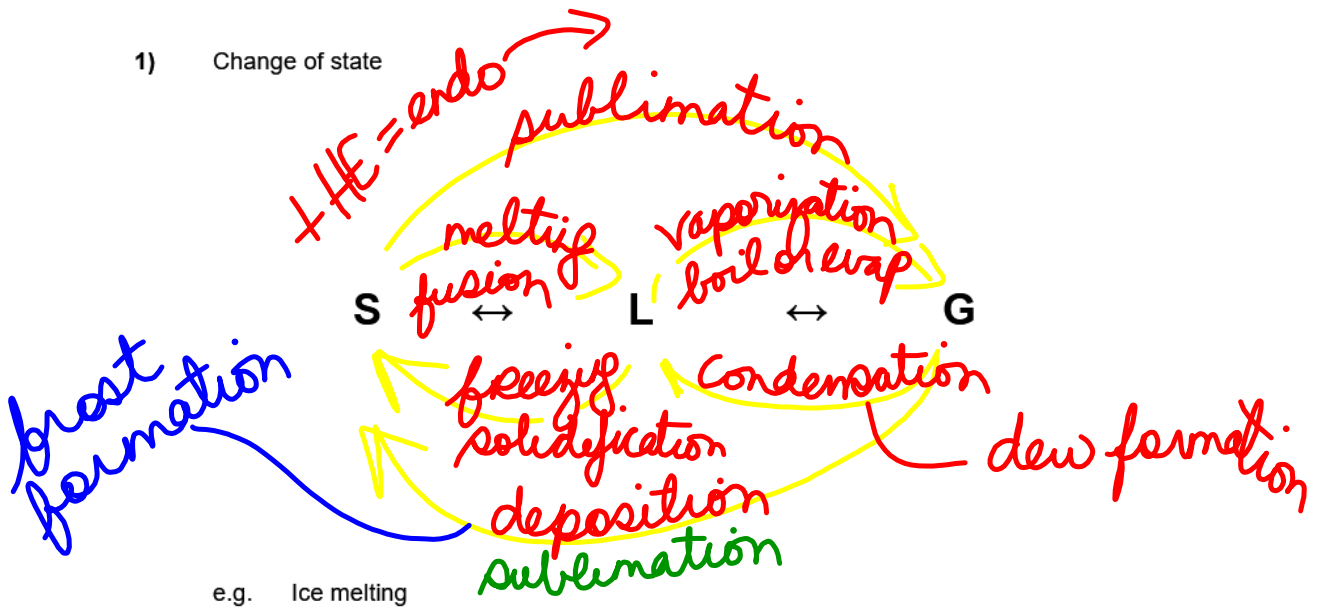 1) Change of state
+HE = endo
sublimation
melting
fusion
vaporization
boil or evap
S ↔ L ↔ G
freezing
solidification
condensation
frost
formation
dew formation
deposition
sublimation
e.g. Ice melting